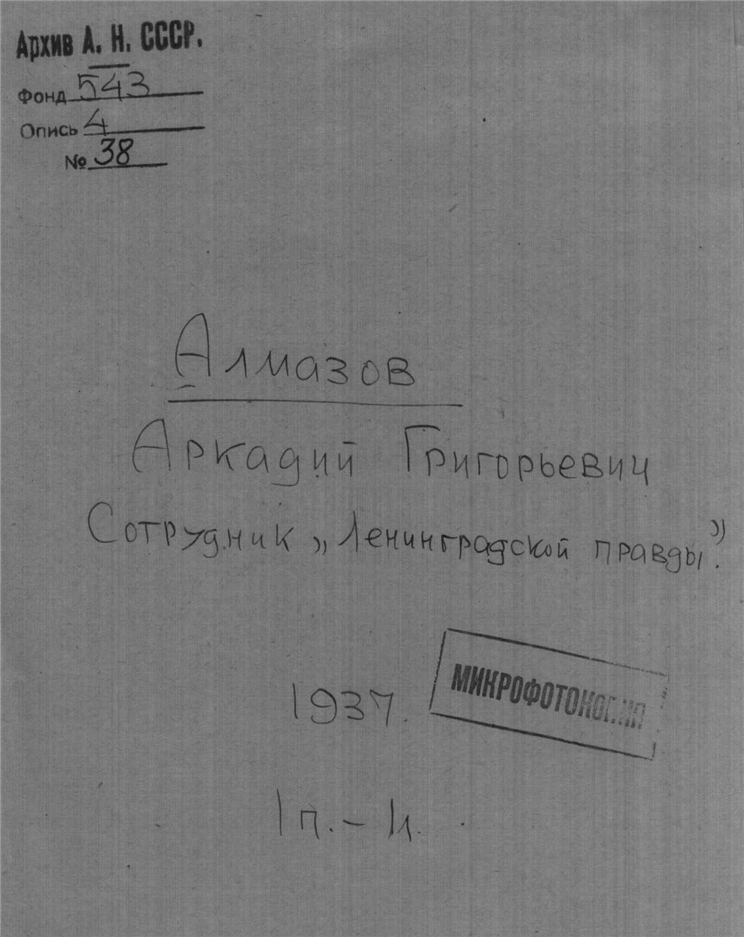 Архив А. Н. СССР.
Фонд 543
Опись 4
№ 38
Алмазов
Аркадий Григорьевич
Сотрудник „Ленинградской правды".
1937.
МИКРОФОТОКОПИЯ
1 п. – 1 л.